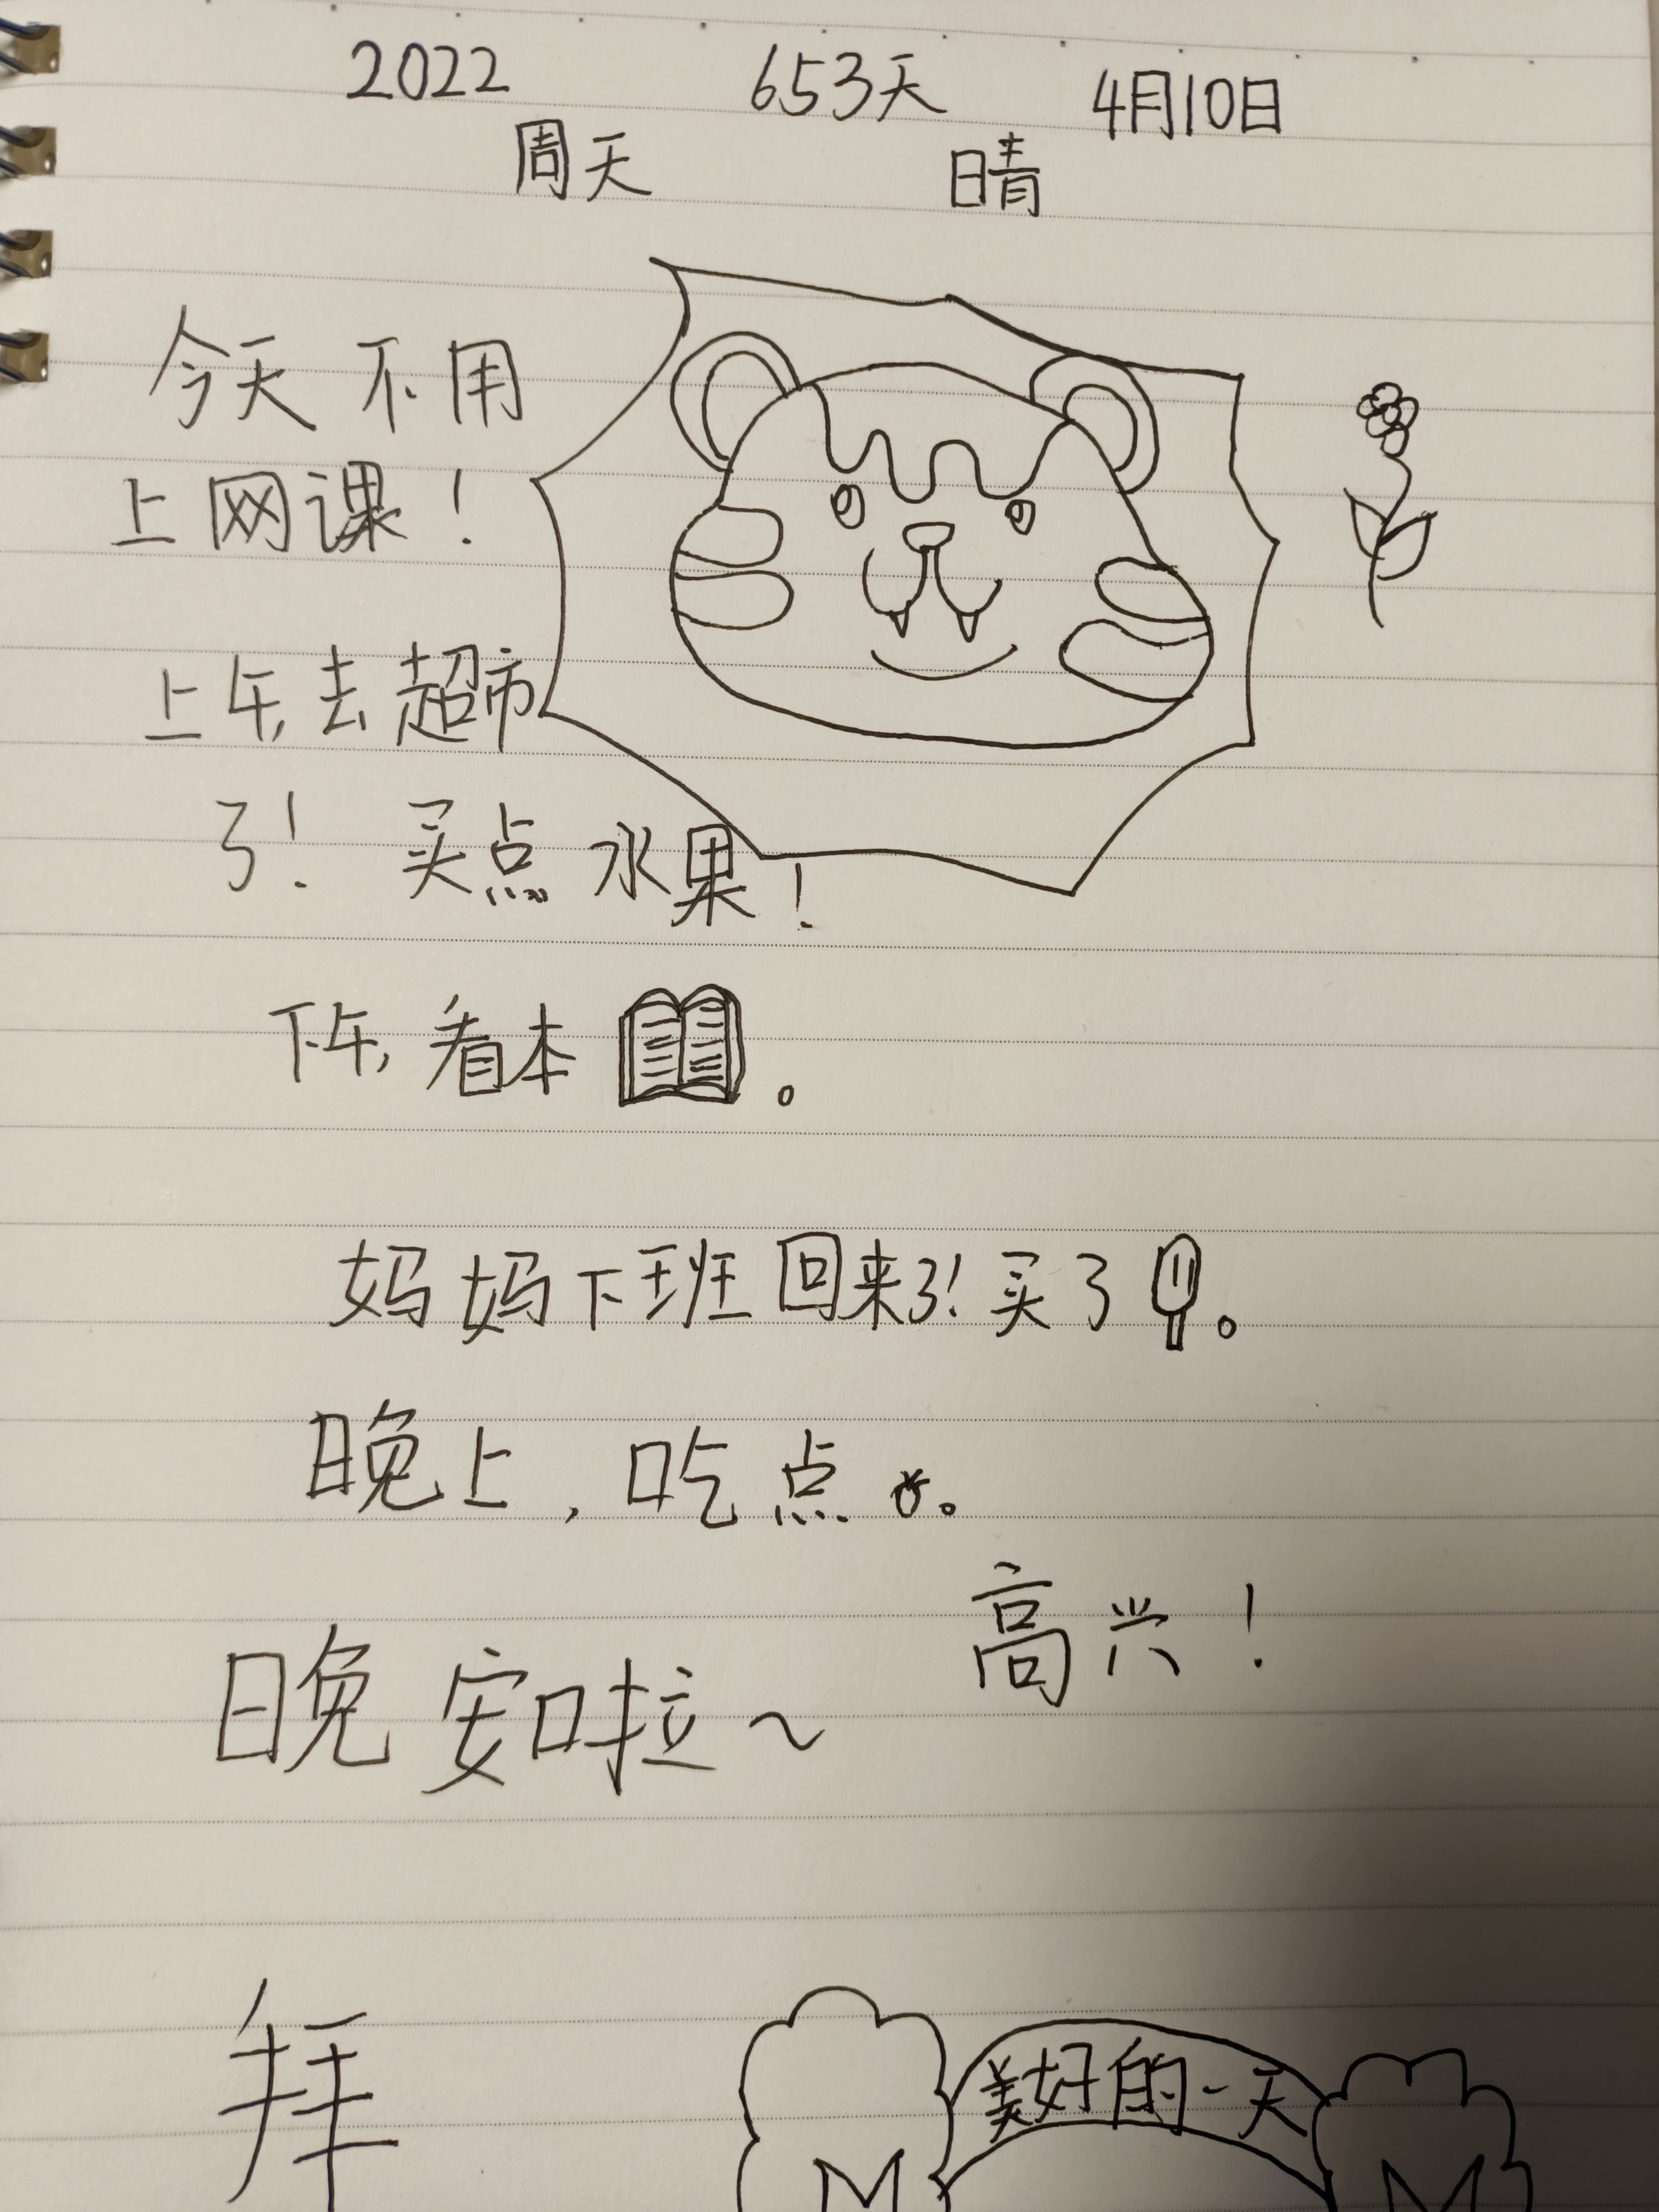 2022 653天 4月10日
周天 晴
今天不用
上网课！
上午,去超市
了！买点水果！
下午,看本。
妈妈下班回来了!买了。
晚上,吃点。
高兴！
晚安啦~
拜
美好的一天
M M